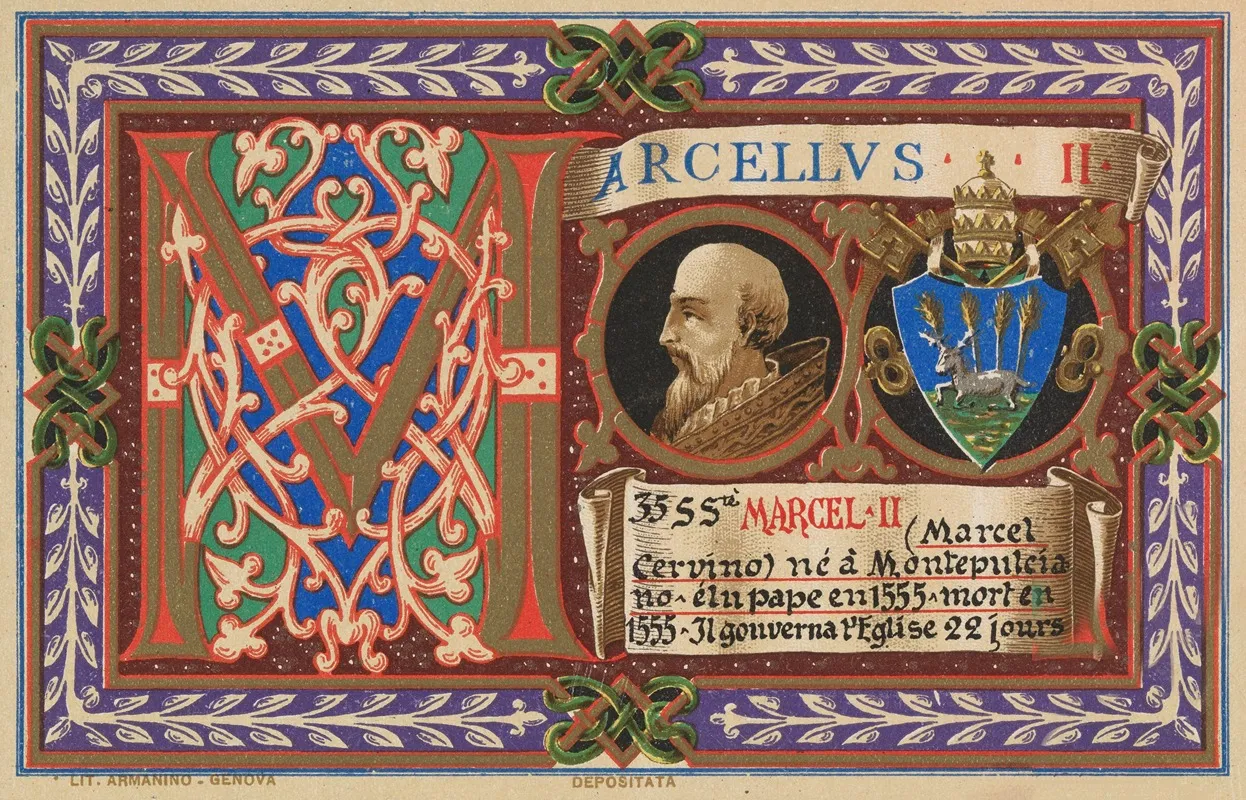 MARCELLVS · · · II ·
35 S Stè MARCEL·II (Marcel
Cervino) né à Montepulcia
no · élu pape en 1555 · mort en
1555 · Il gouverna l'Eglise 22 jours
LIT. ARMANINO - GENOVA
DEPOSITATA